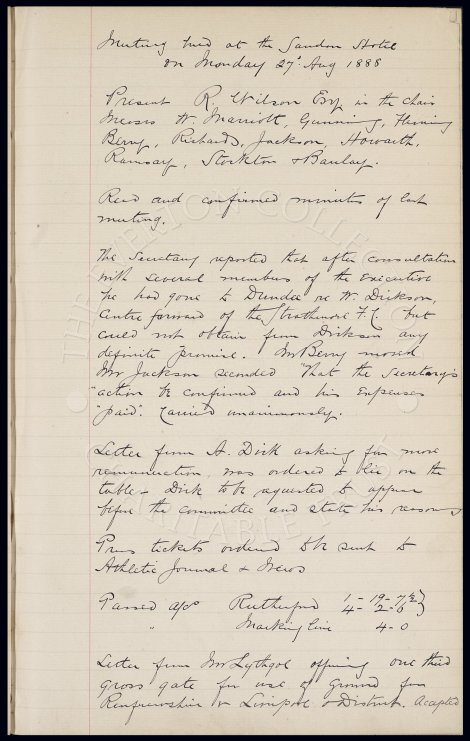 Meeting held at the Sandon Hotel
on Monday 27th Aug 1888
Present R. Wilson Esq in the Chair
Messrs W. Marriott, Gunning, Fleming
Berry, Richards, Jackson, Howarth,
Ramsay, Stockton & Barclay.
Read and confirmed minutes of last
meeting.
The Secretary reported that after consultation
with several members of the Executive
he had gone to Dundee re W. Dickson,
Centre forward of the Strathmore F.C. but
could not obtain from Dickson any
definite promise. Mr Berry moved
Mr Jackson seconded "That the Secretary's
"action be confirmed and his expenses
"paid". Carried unanimously.
Letter from A. Dick asking for more
remuneration, was ordered to lie on the
table - Dick to be requested to appear
before the committee and state his reasons
Press tickets ordered to be sent to
Athletic Journal & News
Passed a/cs Rutherford 1 - 19 - 7½ }
4 - 2 - 6 }
" Marking line 4 - 0
Letter from Mr Lythgoe offering one third
gross gate for use of Ground for
Renfrewshire v Liverpool & District. Accepted
THE EVERTON COLLECTION
CHARITABLE TRUST